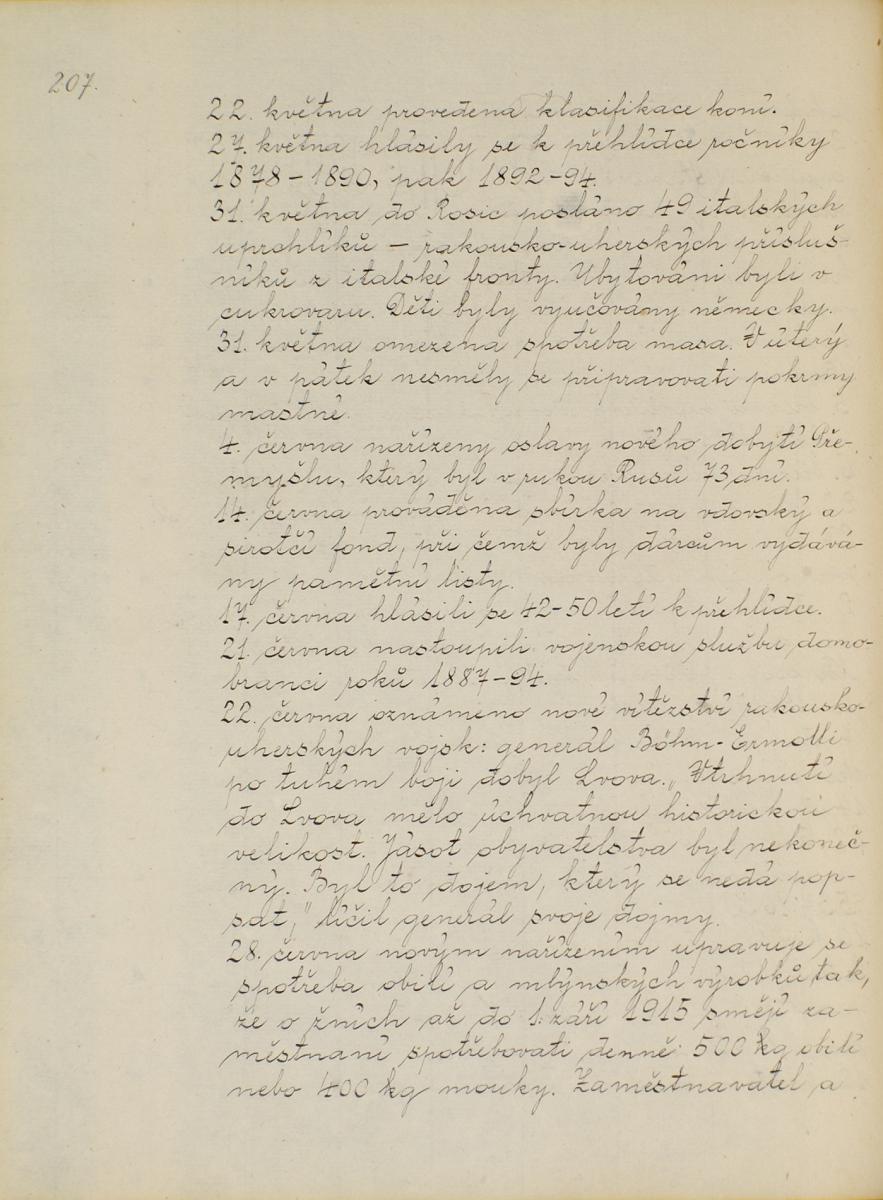 207.
22. května provedena klasifikace koní.
27. května hlásily se k přehlídce ročníky
1878 – 1890, pak 1892 – 94.
31. května do Rosic posláno 49 italských
uprchlíků – rakousko-uherských přísluš-
níků z italské fronty. Ubytováni byli v
cukrovaru. Děti byly vyučovány německy.
31. května omezena spotřeba masa. V úterý
a v pátek nesměly se připravovati pokrmy
mastné.
4. června nařízeny oslavy nového dobytí Pře-
myšlu, který byl v rukou Rusů 73 dní.
14. června prováděna sbírka na vdovský a
sirotčí fond, při čemž byly dárcům vydává-
ny pamětní listy.
17. června hlásili se 42-50 letí k přehlídce.
21. června nastoupili vojenskou službu domo-
branci roků 1887 – 94.
22. června oznámeno nové vítězství rakousko-
uherských vojsk: generál Böhm-Ermolli
po tuhém boji dobyl Lvova. „Vtrhnutí
do Lvova mělo úchvatnou historickou
velikost. Jásot obyvatelstva byl nekoneč-
ný. Byl to dojem, který se nedá pop-
sat," líčil generál svoje dojmy.
28. června novým nařízením upravuje se
spotřeba obilí a mlýnských výrobků tak,
že o žních až do 1. září 1915 smějí za-
městnaní spotřebovati denně 500 kg obilí
nebo 400 kg mouky. Zaměstnavatel a